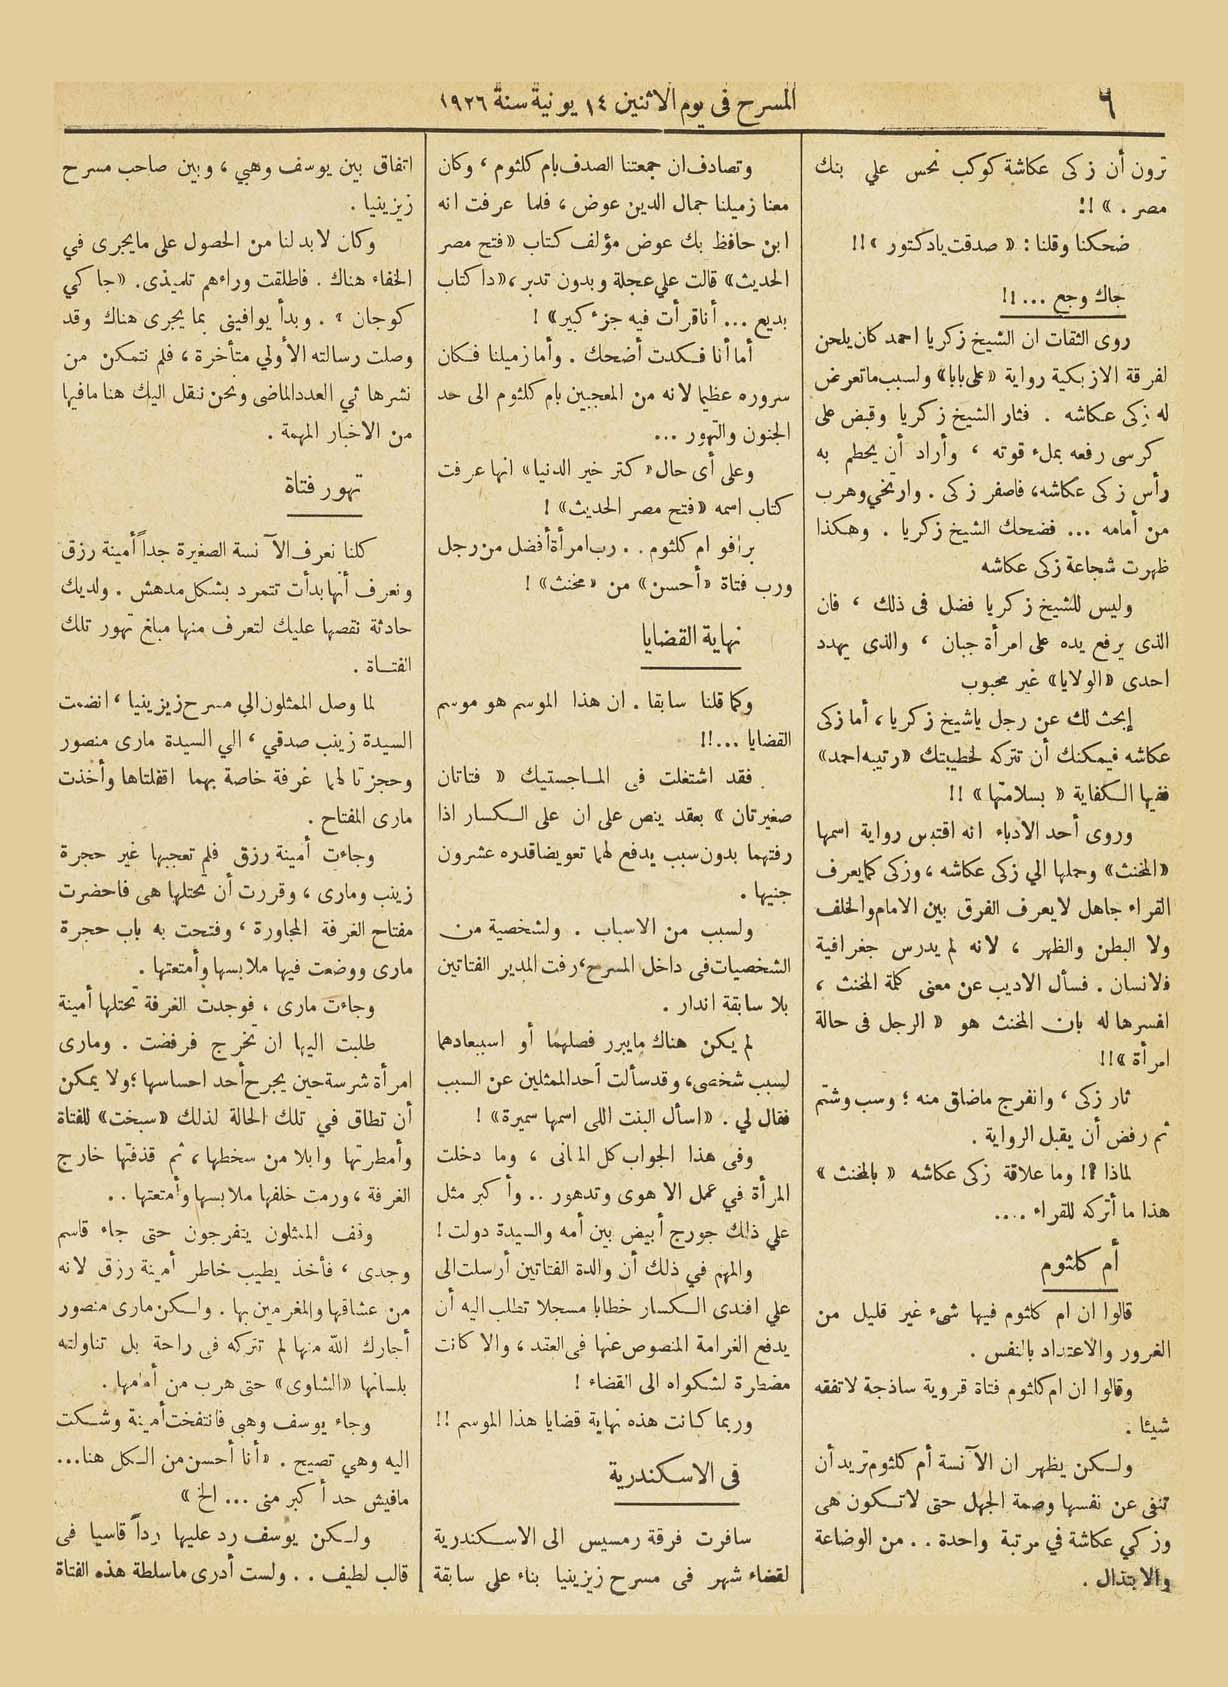 ٦
المسرح فى يوم الاثنين ١٤ يونية سنة ١٩٢٦
ترون أن زكى عكاشة كوكب نحس علي بنك
مصر . » !!
ضحكنا وقلنا : « صدقت يادكتور »!!
جاك وجع ... !!
روى الثقات ان الشيخ زكريا احمد كان يلحن
لفرقة الازبكية رواية «على بابا» ولسبب ماتعرض
له زكى عكاشه . فثار الشيخ زكريا وقبض على
كرسى رفعه بملء قوته ، وأراد أن يحطم به
رأس زكى عكاشه، فاصفر زكى . وارتخي وهرب
من أمامه ... فضحك الشيخ زكريا . وهكذا
ظهرت شجاعة زكى عكاشه
وليس للشيخ زكريا فضل فى ذلك ، فان
الذى يرفع يده على امرأة جبان ، والذى يهدد
احدى «الولايا» غير محبوب
إبحث لك عن رجل ياشيخ زكريا ، أما زكى
عكاشه فيمكنك أن تتركه لخطيبتك «رتيبه احمد»
ففيها الكفاية « بسلامتها » !!
وروى أحد الادباء انه اقتبس رواية اسمها
«المخنث» وحملها الي زكى عكاشه ، وزكى كما يعرف
القراء جاهل لا يعرف الفرق بين الامام والخلف
ولا البطن والظهر ، لانه لم يدرس جغرافية
فلانسان . فسأل الاديب عن معنى كلمة المخنث ،
افسرها له بان المخنث هو « الرجل فى حالة
امرأة »!!
ثار زكى ، وانفرج ماضاق منه ؛ وسب وشتم
ثم رفض أن يقبل الرواية .
لماذا ؟! وما علاقة زكى عكاشه « بالمخنث »
هذا ما أتركه للقراء ....
أم كلثوم
قالوا ان ام كلثوم فيها شىء غير قليل من
الغرور والاعتداد بالنفس .
وقالوا ان ام كلثوم فتاة قروية ساذجة لاتفقه
شيئا .
ولكن يظهر ان الآنسة أم كلثوم تريد أن
تنفى عن نفسها وصمة الجهل حتى لاتكون هى
وزكي عكاشة في مرتبة واحدة . . من الوضاعة
والابتذال .
وتصادف ان جمعتنا الصدف بام كلثوم ، وكان
معنا زميلنا جمال الدين عوض ، فلما عرفت انه
ابن حافظ بك عوض مؤلف كتاب «فتح مصر
الحديث» قالت علي عجلة وبدون تدبر ، «دا كتاب
بديع ... أنا قرأت فيه جزء كبير» !
أما أنا فكدت أضحك . وأما زميلنا فكان
سروره عظيما لانه من المعجبين بام كلثوم الى حد
الجنون والتهور ...
وعلى أى حال « كتر خير الدنيا» انها عرفت
كتاب اسمه «فتح مصر الحديث» !
برافو ام كلثوم . . رب امرأة أفضل من رجل
ورب فتاة «أحسن» من «مخنث» !
نهاية القضايا
وكما قلنا سابقا . ان هذا الموسم هو موسم
القضايا ...!!
فقد اشتغلت فى الماجستيك « فتاتان
صغيرتان » بعقد ينص على ان على الكسار اذا
رفتهما بدون سبب يدفع لهما تعويضا قدره عشرون
جنيها .
ولسبب من الاسباب . ولشخصية من
الشخصيات فى داخل المسرح ، رفت المدير الفتاتين
بلا سابقة انذار .
لم يكن هناك مايبرر فصلهما أو استبعادهما
لسبب شخصى ، وقد سألت أحد الممثلين عن السبب
فقال لي . «اسأل البنت اللى اسمها سميرة» !
وفى هذا الجواب كل المانى ، وما دخلت
المرأة في عمل الا هوى وتدهور .. وأكبر مثل
علي ذلك جورج أبيض بين أمه والسيدة دولت !
والمهم في ذلك أن والدة الفتاتين أرسلت الى
علي افندى الكسار خطابا مسجلا تطلب اليه أن
يدفع الغرامة المنصوص عنها فى العقد ، والا كانت
مضطرة لشكواه الى القضاء !
وربما كانت هذه نهاية قضايا هذا الموسم !!
فى الاسكندرية
سافرت فرقة رمسيس الى الاسكندرية
لقضاء شهر فى مسرح زيزينيا بناء على سابقة
اتفاق بين يوسف وهبي ، وبين صاحب مسرح
زيزينيا .
وكان لابد لنا من الحصول على مايجرى في
الخفاء هناك . فاطلقت وراءهم تلميذى . «جاكي
كوجان » . وبدأ يوافينى بما يجرى هناك وقد
وصلت رسالته الأولي متأخرة ، فلم نتمكن من
نشرها في العدد الماضى ونحن ننقل اليك هنا مافيها
من الاخبار المهمة .
تهور فتاة
كلنا نعرف الآنسة الصغيرة جداً أمينة رزق
ونعرف أنها بدأت تتمرد بشكل مدهش . ولديك
حادثة نقصها عليك لتعرف منها مبلغ تهور تلك
الفتاة .
لما وصل الممثلون الي مسرح زيزينيا ، انضمت
السيدة زينب صدقي ، الي السيدة مارى منصور
وحجزتا لهما غرفة خاصة بهما اقفلتاها وأخذت
مارى المفتاح .
وجاءت أمينة رزق فلم تعجبها غير حجرة
زينب ومارى ، وقررت أن تحتلها هى فاحضرت
مفتاح الغرفة المجاورة ، وفتحت به باب حجرة
مارى ووضعت فيها ملابسها وأمتعتها .
وجاءت مارى ، فوجدت الغرفة تحتلها أمينة
طلبت اليها ان تخرج فرفضت . ومارى
امرأة شرسة حين يجرح أحد احساسها ؛ ولا يمكن
أن تطاق في تلك الحالة لذلك «سبخت» للفتاة
وأمطرتها وابلا من سخطها ، ثم قذفتها خارج
الغرفة ، ورمت خلفها ملابسها وأمتعتها . .
وقف الممثلون يتفرجون حتى جاء قاسم
وجدى ، فأخذ يطيب خاطر أمينة رزق لانه
من عشاقها والمغرمين بها . ولكن مارى منصور
أجارك الله منها لم تتركه فى راحة بل تناولته
بلسانها «الشاوى» حتى هرب من أمامها .
وجاء يوسف وهبى فانتفخت أمينة وشكت
اليه وهي تصيح . «أنا أحسن من الكل هنا ...
مافيش حد أكبر منى ... الخ »
ولكن يوسف رد عليها رداً قاسيا فى
قالب لطيف . . ولست أدرى ماسلطة هذه الفتاة